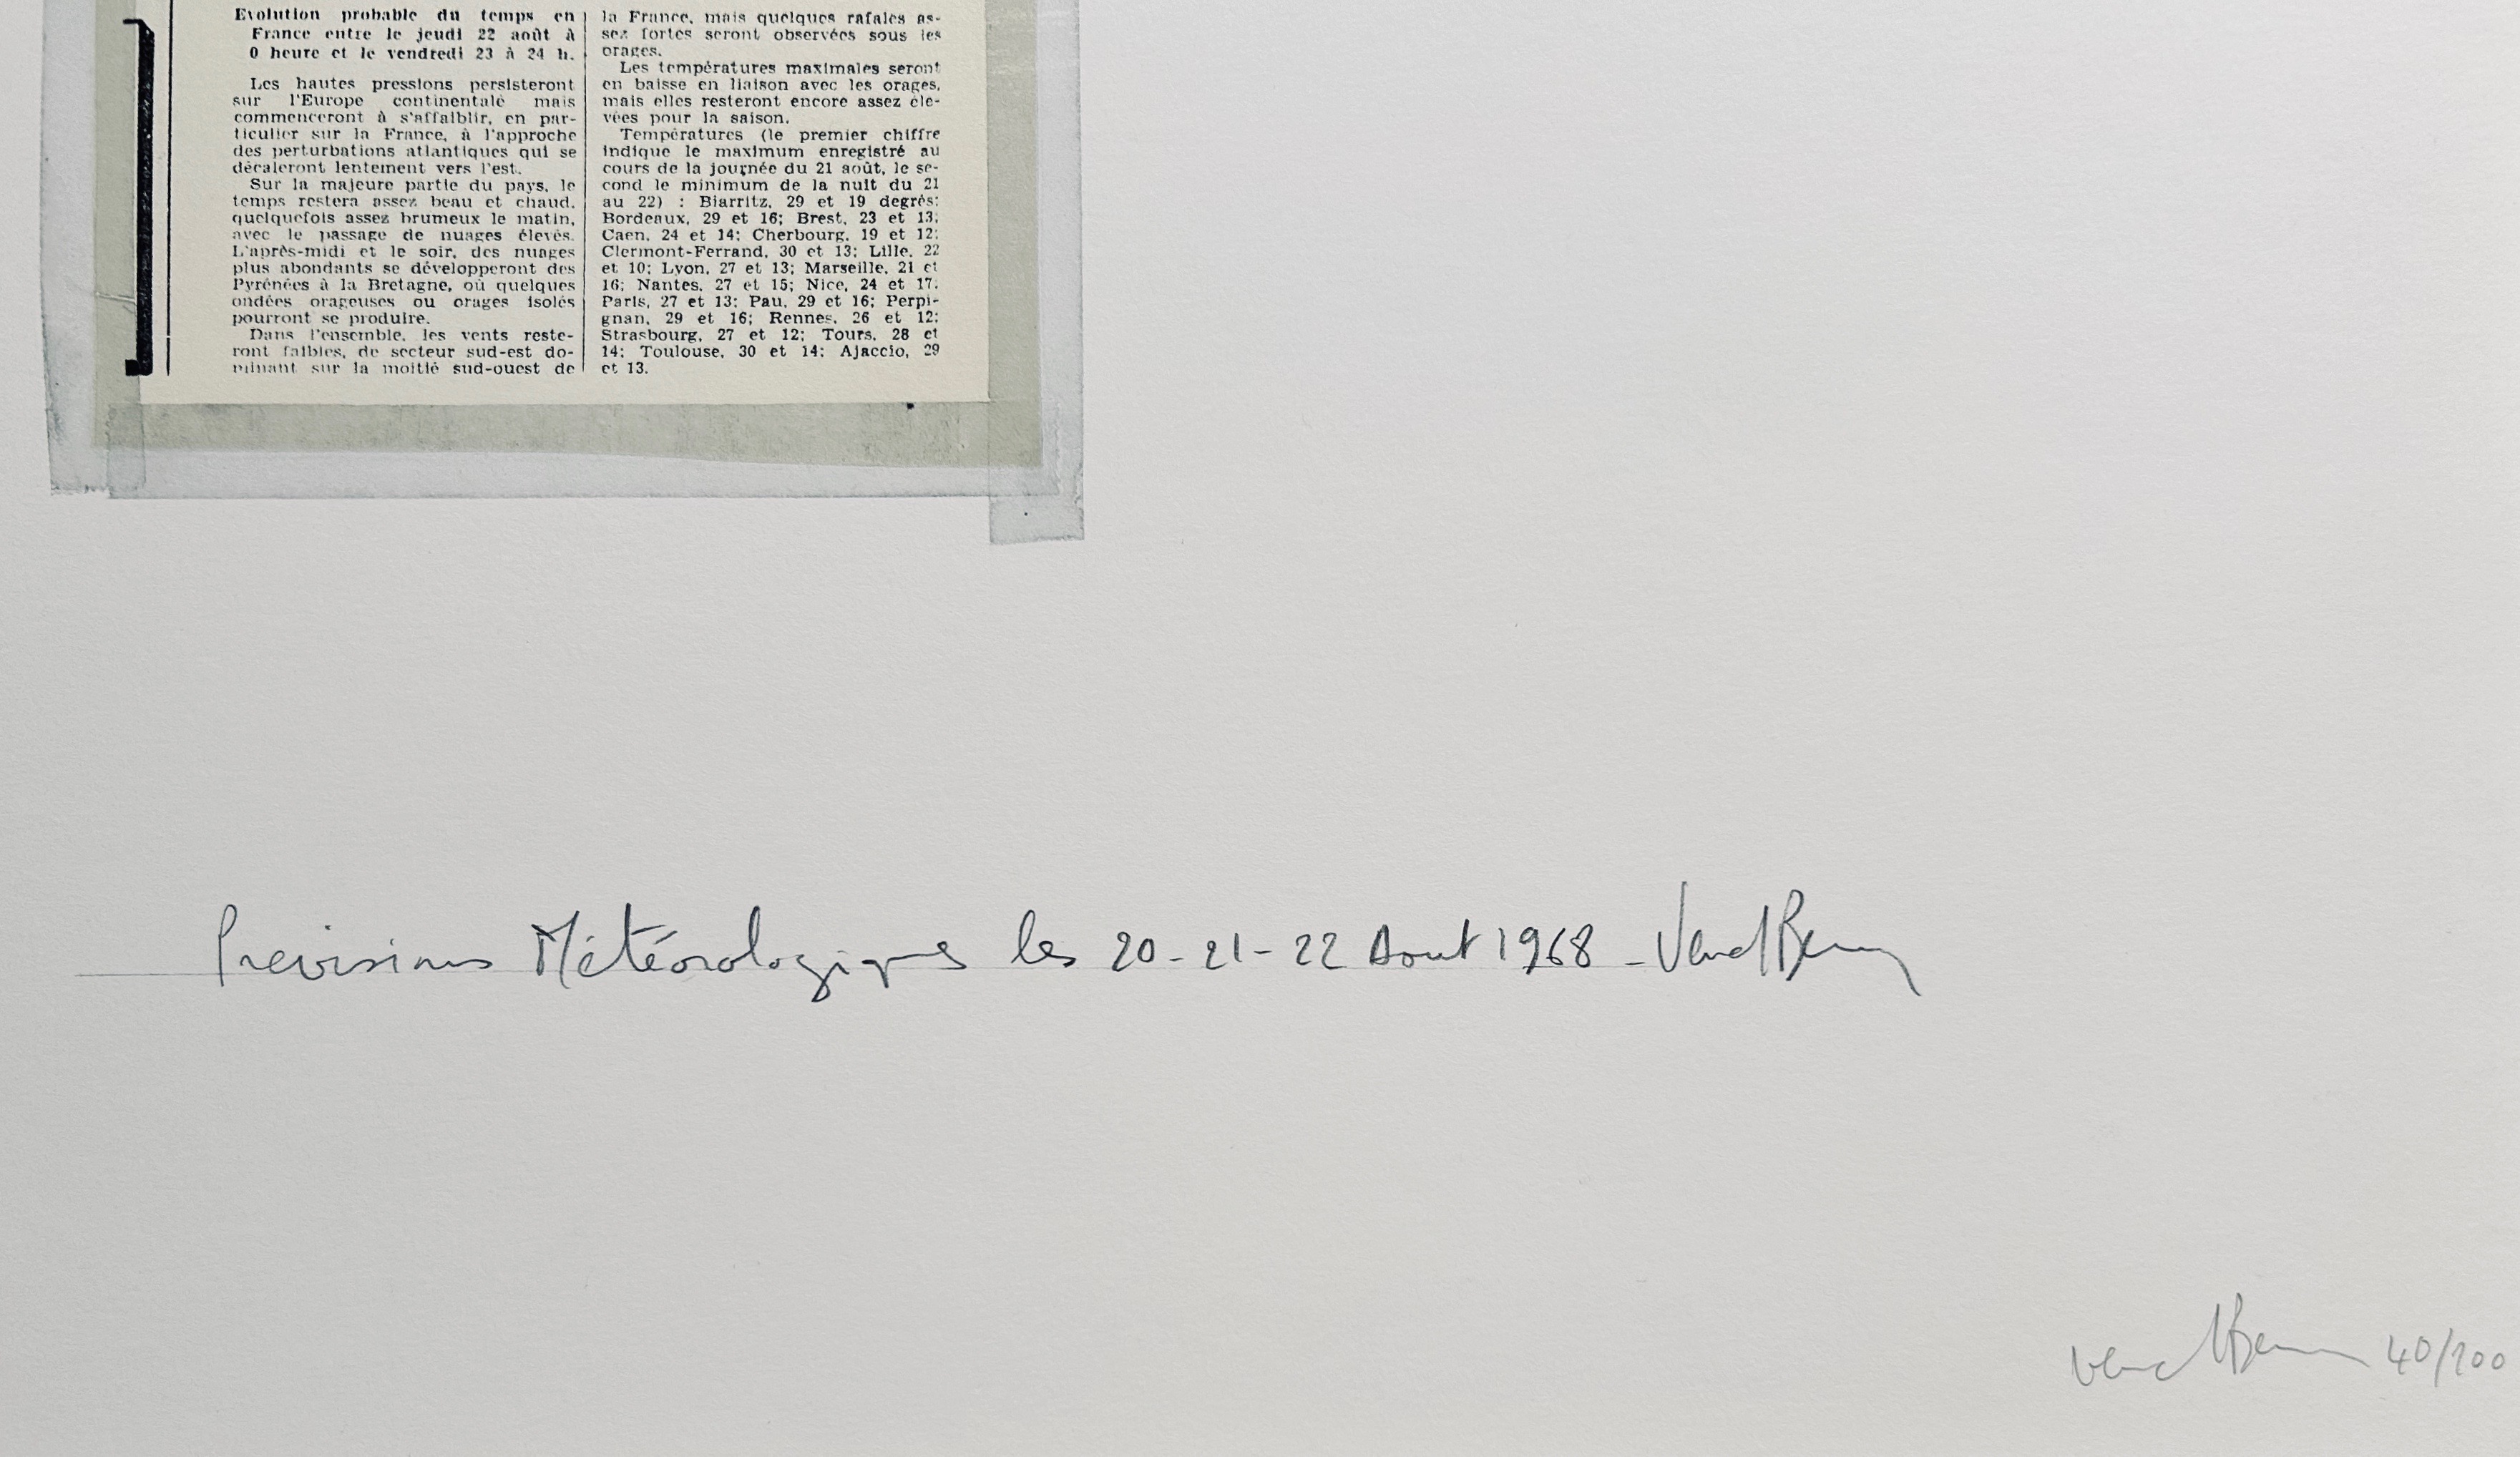 Evolution probable du temps en
France entre le jeudi 22 août à
0 heure et le vendredi 23 à 24 h.
Les hautes pressions persisteront
sur l'Europe continentale mais
commenceront à s'affaiblir, en par-
ticulier sur la France, à l'approche
des perturbations atlantiques qui se
décaleront lentement vers l'est.
Sur la majeure partie du pays, le
temps restera assez beau et chaud,
quelquefois assez brumeux le matin,
avec le passage de nuages élevés.
L'après-midi et le soir, des nuages
plus abondants se développeront des
Pyrénées à la Bretagne, où quelques
ondées orageuses ou orages isolés
pourront se produire.
Dans l'ensemble, les vents reste-
ront faibles, de secteur sud-est do-
minant sur la moitié sud-ouest de
la France, mais quelques rafales as-
sez fortes seront observées sous les
orages.
Les températures maximales seront
en baisse en liaison avec les orages,
mais elles resteront encore assez éle-
vées pour la saison.
Températures (le premier chiffre
indique le maximum enregistré au
cours de la journée du 21 août, le se-
cond le minimum de la nuit du 21
au 22) : Biarritz, 29 et 19 degrés;
Bordeaux, 29 et 16; Brest, 23 et 13;
Caen, 24 et 14; Cherbourg, 19 et 12;
Clermont-Ferrand, 30 et 13; Lille, 22
et 10; Lyon, 27 et 13; Marseille, 21 et
16; Nantes, 27 et 15; Nice, 24 et 17;
Paris, 27 et 13; Pau, 29 et 16; Perpi-
gnan, 29 et 16; Rennes, 26 et 12;
Strasbourg, 27 et 12; Tours, 28 et
14; Toulouse, 30 et 14; Ajaccio, 29
et 13.
Previsions Météorologiques les 20-21-22 Aout 1968 -
40/100